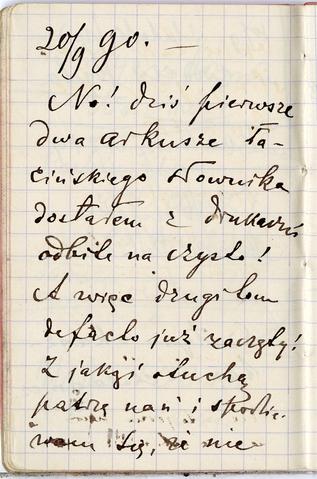 20/9 90. —
No! dziś pierwsze
dwa arkusze ła-
cińskiego słownika
dostałem z drukarni
odbite na czysto!
A więc drugi tom
de facto już zaczęty!
Z jakąś otuchą
patrzę nań i spodzie-
wam się, że nie